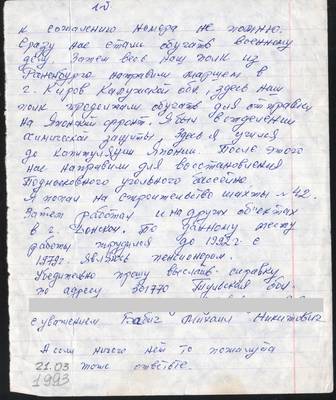 к сожалению номера не помню.
Сразу нас стали обучать военному
делу. Затем весь наш полк из
направили маршем в
г. Киров Калужской обл, здесь наш
полк продолжили обучать для отправки
на Японский фронт. Я был в отделении
химической защиты, здесь я учился
до капитуляции Японии. После этого
нас направили для восстановления
Подмосковного угольного бассейна
Я попал на строительство шахты №42.
Затем работал и на других объектах
в г. Донском. По данному месту
работы трудился до 1992 г с
1979г. являюсь пенсионером.
Убедительно прошу выслать справку
по адресу 301770 Тульская обл.
с уважением Бабич Михаил Никитович
А если ничего нет то пожалуйста
21.03 тоже ответьте.
1993